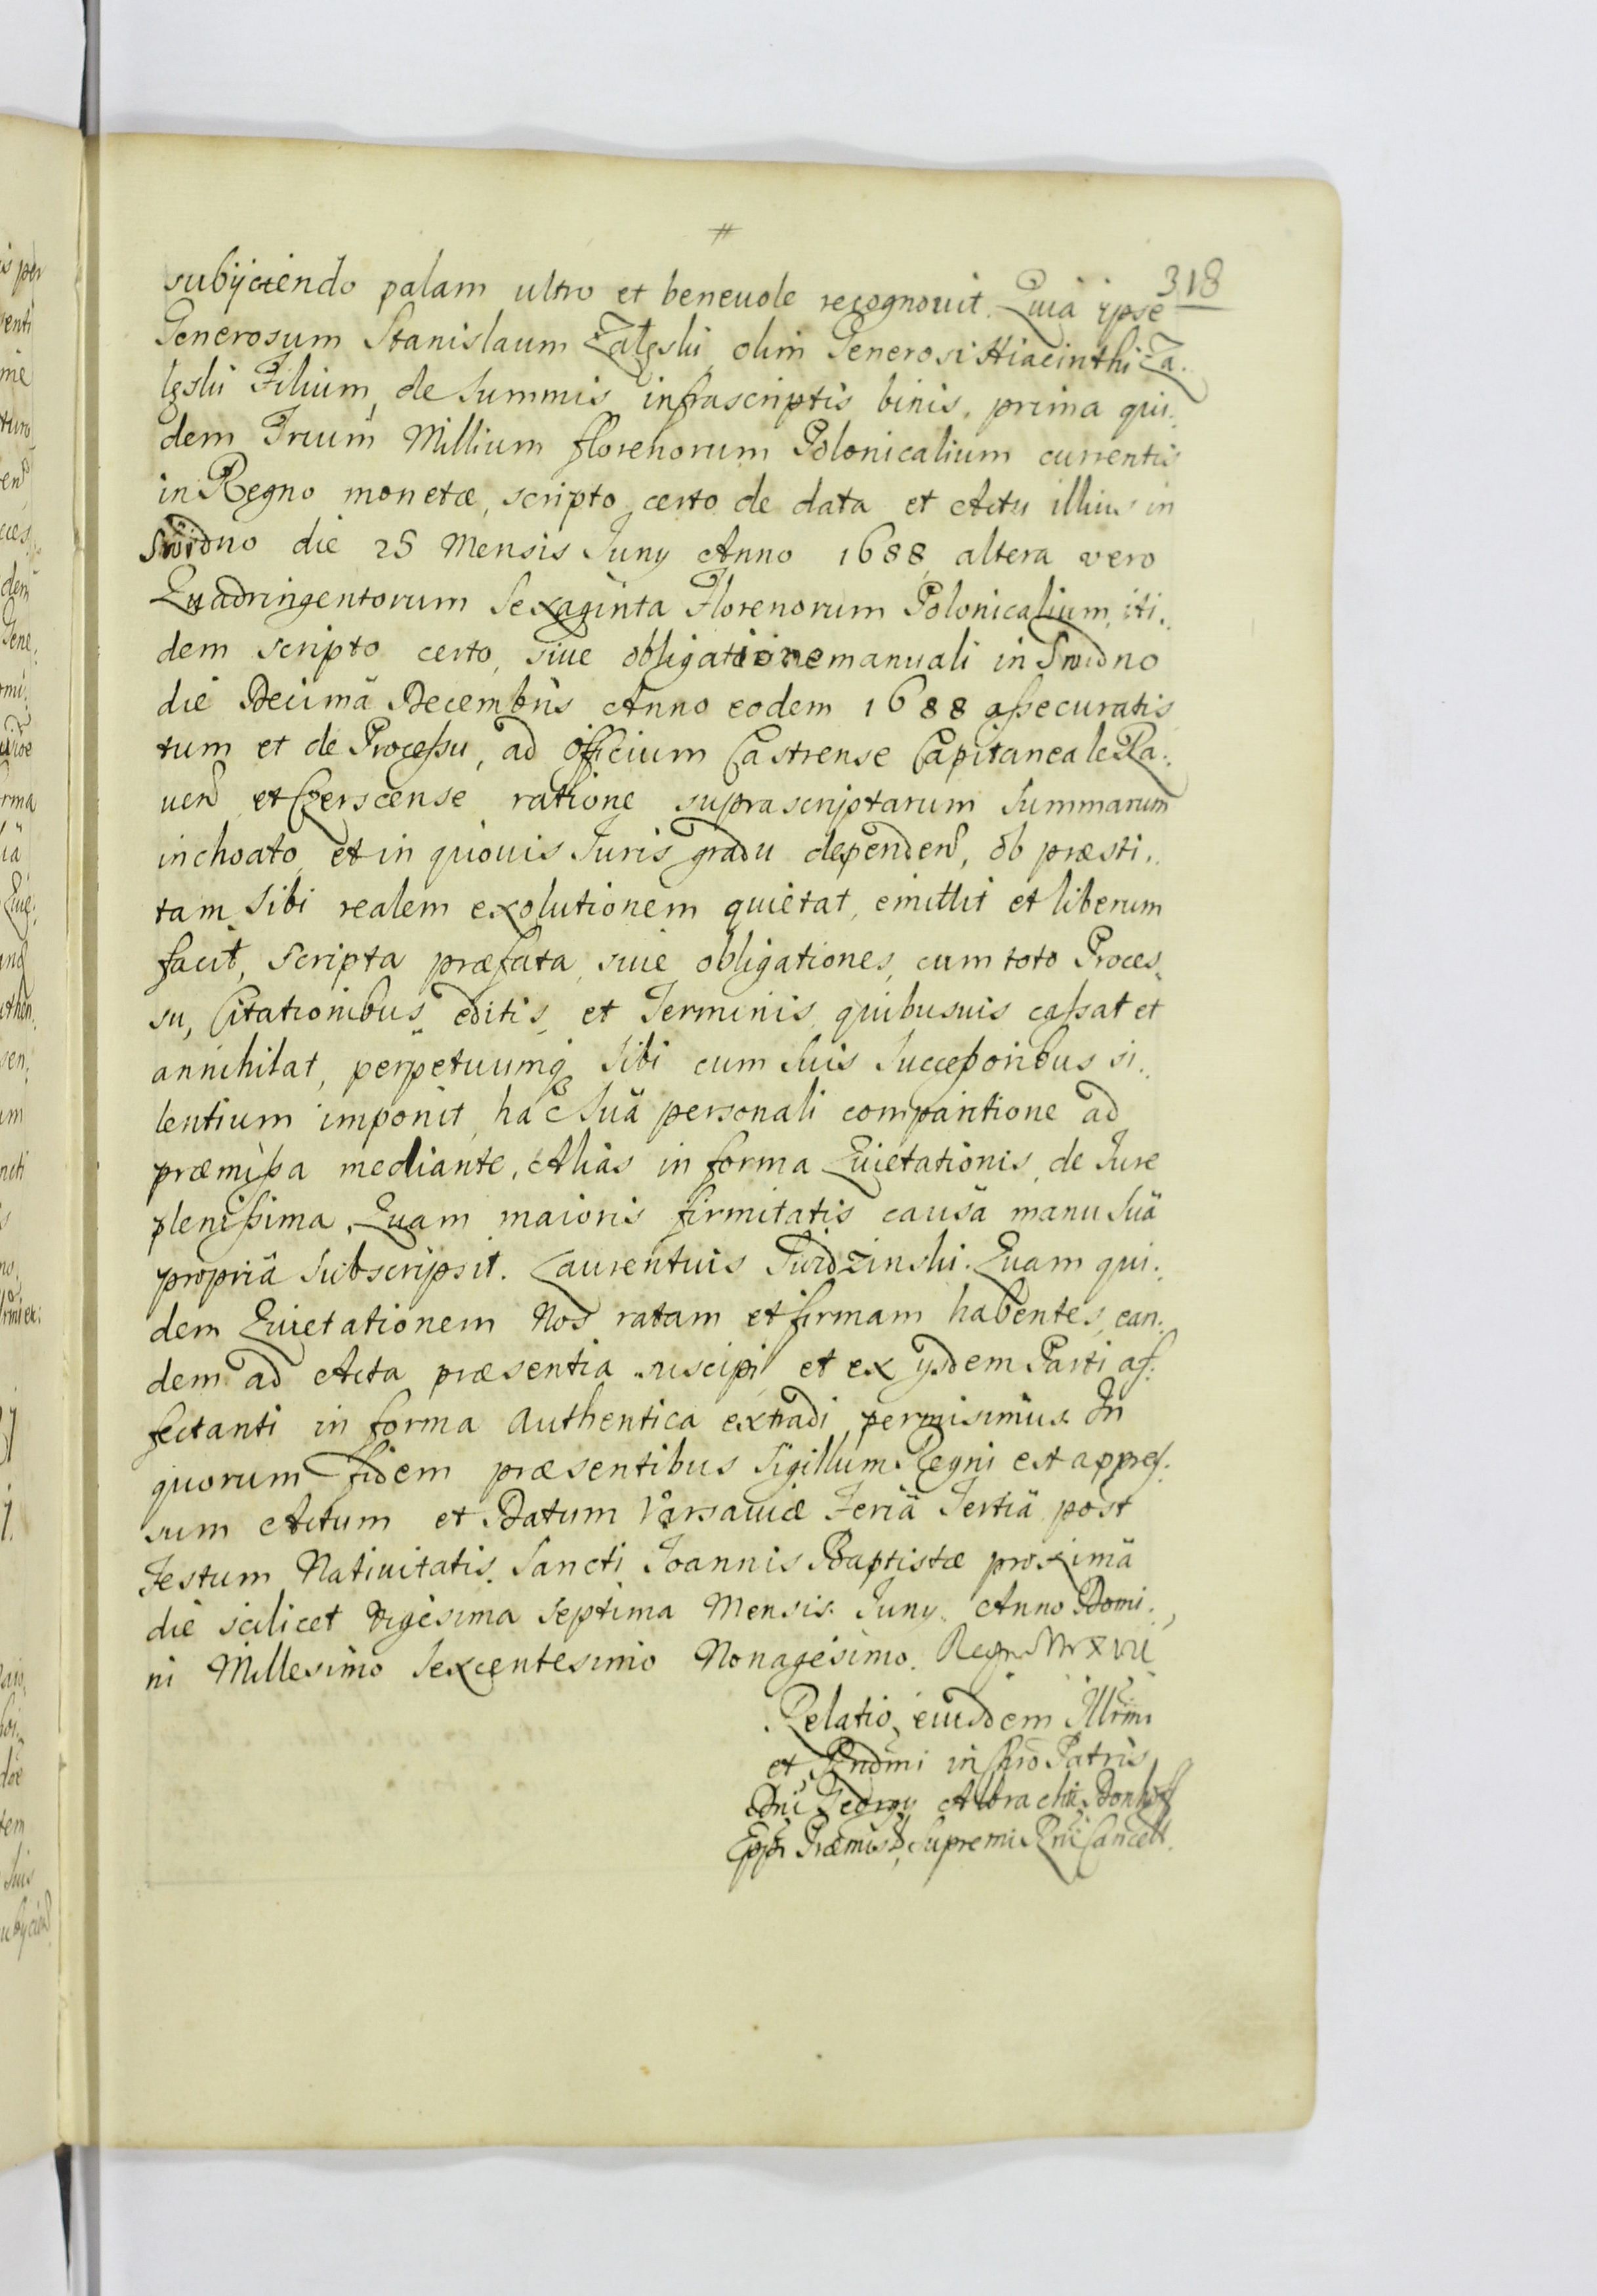 #
318
subÿciendo palam ultro et beneuole recognouit. Quia ipse
Generosum Stanislaum Załęski olim Generosi Hiacinthi Za.
łęski Filium, de Summis infrascriptis binis, prima qui.
dem Trium Millium florenorum Polonicalium currentis
in Regno monetæ, scripto certo de data et Actu illius in
Swidno die 25 Mensis Juny Anno 1688 altera vero
Quadringentorum Sexaginta Florenorum Polonicalium, iti.
dem scripto certo, siue obligatione manuali in Swidno
die Decimâ Decembris Anno eodem 1688 assecuratis
tum et de Processu, ad Officium Castrense Capitaneale Ra.
uen et Czerscense ratione suprascriptarum Summarum
inchoato, et in quouis Juris gradu dependen, ob præsti.
tam Sibi realem exolutionem quietat, emittit et liberum
facit, Scripta præfata siue obligationes, cum toto Proces
su, Citationibus editis, et Terminis quibusuis cassat et
annihilat, perpetuumq Sibi cum Suis Successoribus si.
lentium imponit, hac Suâ personali comparitione ad
præmissa mediante, Alias in forma Quietationis, de Jure
plenissima, Quam maioris firmitatis causâ manu Suâ
propriâ Subscripsit. Laurentius Swidzinski. Quam qui.
dem Quietationem Nos ratam et firmam habentes, ean.
dem ad Acta præsentia suscipi et ex ysdem Parti af.
fectanti in forma Authentica extradi permisimus. In
quorum fidem præsentibus Sigillum Regni est appres.
sum Actum et Datum Varsauiæ Feriâ Tertiâ post
Festum Natiuitatis Sancti Joannis Baptistæ proximâ
die scilicet Vigesima Septima Mensis Juny Anno Domi.
ni Millesimo Sexcentesimo Nonagesimo. Regn. Nri XVII
Relatio eiusdem Illrmi
et Rndmi in Chro Patris
Dni Georgy Albrachti Donhoff
Eppi Præmisl, Supremi Rni Cancell.